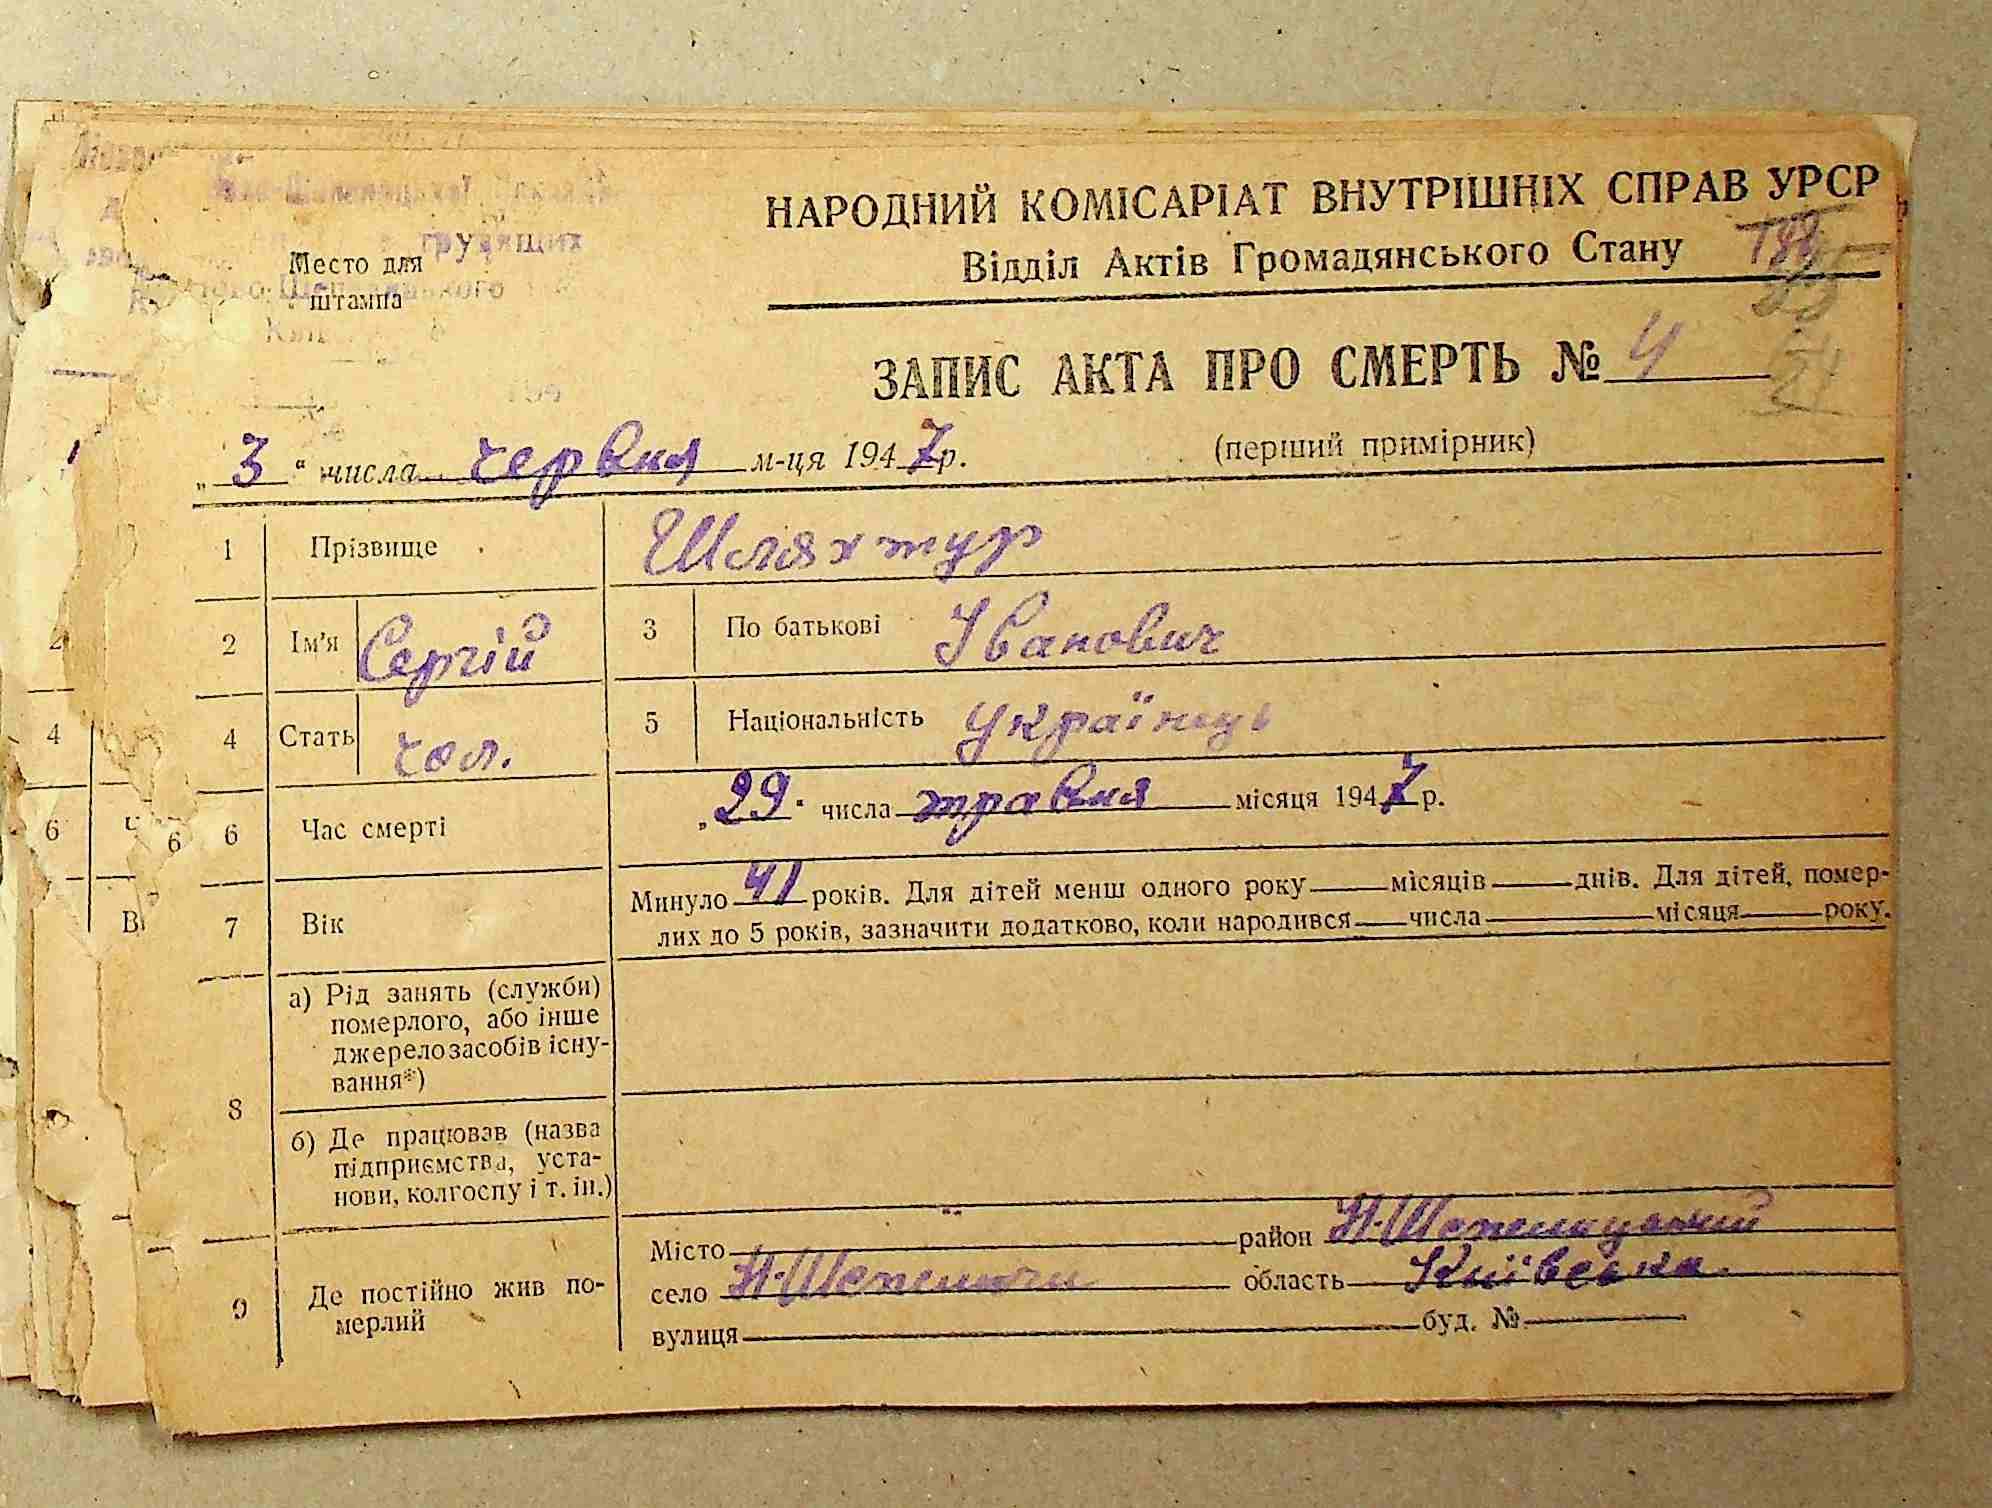 НАРОДНИЙ КОМІСАРІАТ ВНУТРІШНІХ СПРАВ УРСР
Відділ Актів Громадянського Стану
трудящих
Место для
штампа
ЗАПИС АКТА ПРО СМЕРТЬ № 4
„3“ числа червня м-ця 1947 р.
(перший примірник)
1 Прізвище Шляхтур
2 Ім'я Сергій 3 По батькові Іванович
4 Стать чол. 5 Національність українець
6 Час смерті „29“ числа травня місяця 1947 р.
7 Вік Минуло 41 років. Для дітей менш одного року — місяців — днів. Для дітей, помер-
лих до 5 років, зазначити додатково, коли народився — числа — місяця — року.
8 а) Рід занять (служби)
померлого, або інше
джерело засобів існу-
вання*)
б) Де працював (назва
підприємства, уста-
нови, колгоспу і т. ін.)
9 Де постійно жив по-
мерлий
Місто район Н-Шепелицький
село Н-Шепеличи область Київська
вулиця буд. №
2
4
6
В
6